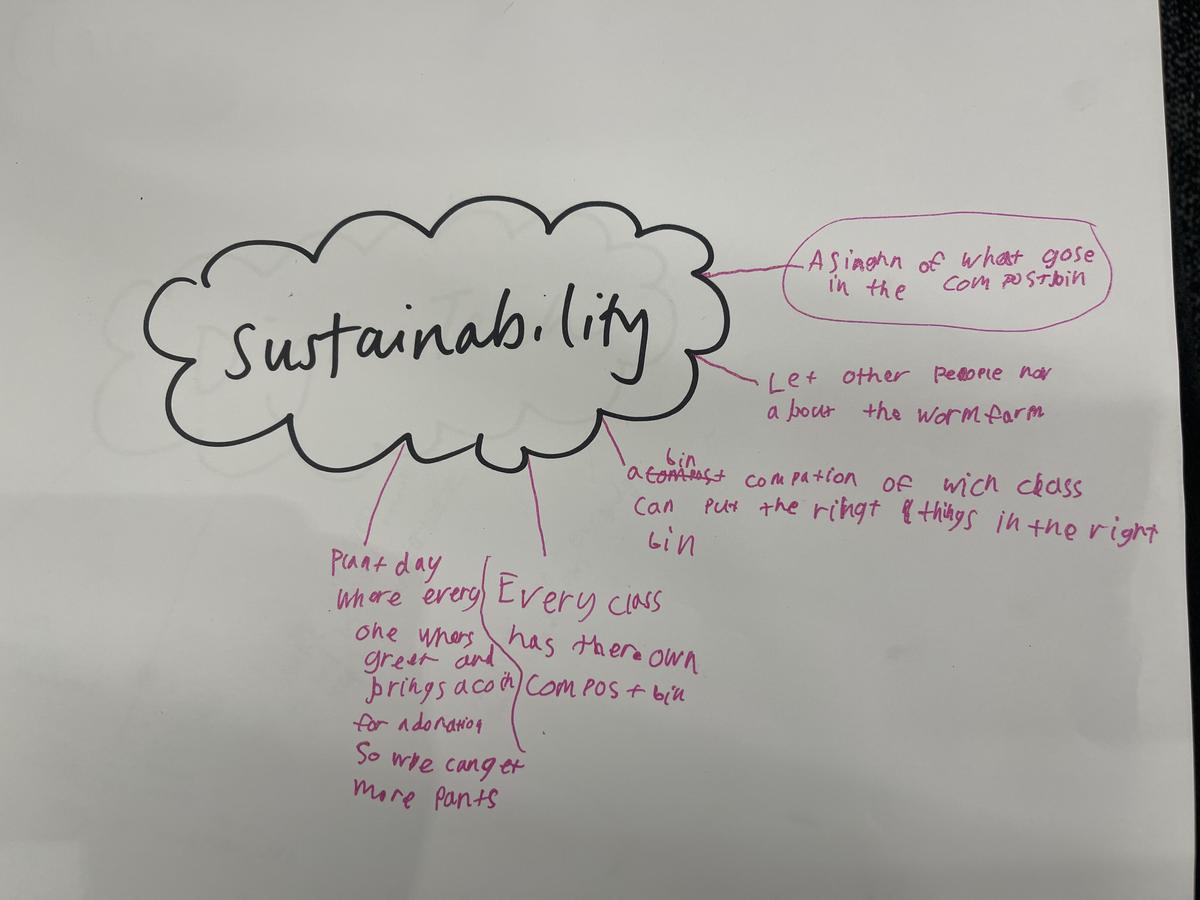 sustainability
A singhn of what gose
in the compostbin
Let other people nor
about the worm farm
a bin compation of wich class
can put the ringt things in the right
bin
Every class
has there own
compost bin
Plant day
where every
one whers
green and
brings a coin
for a donation
So we can get
more pants